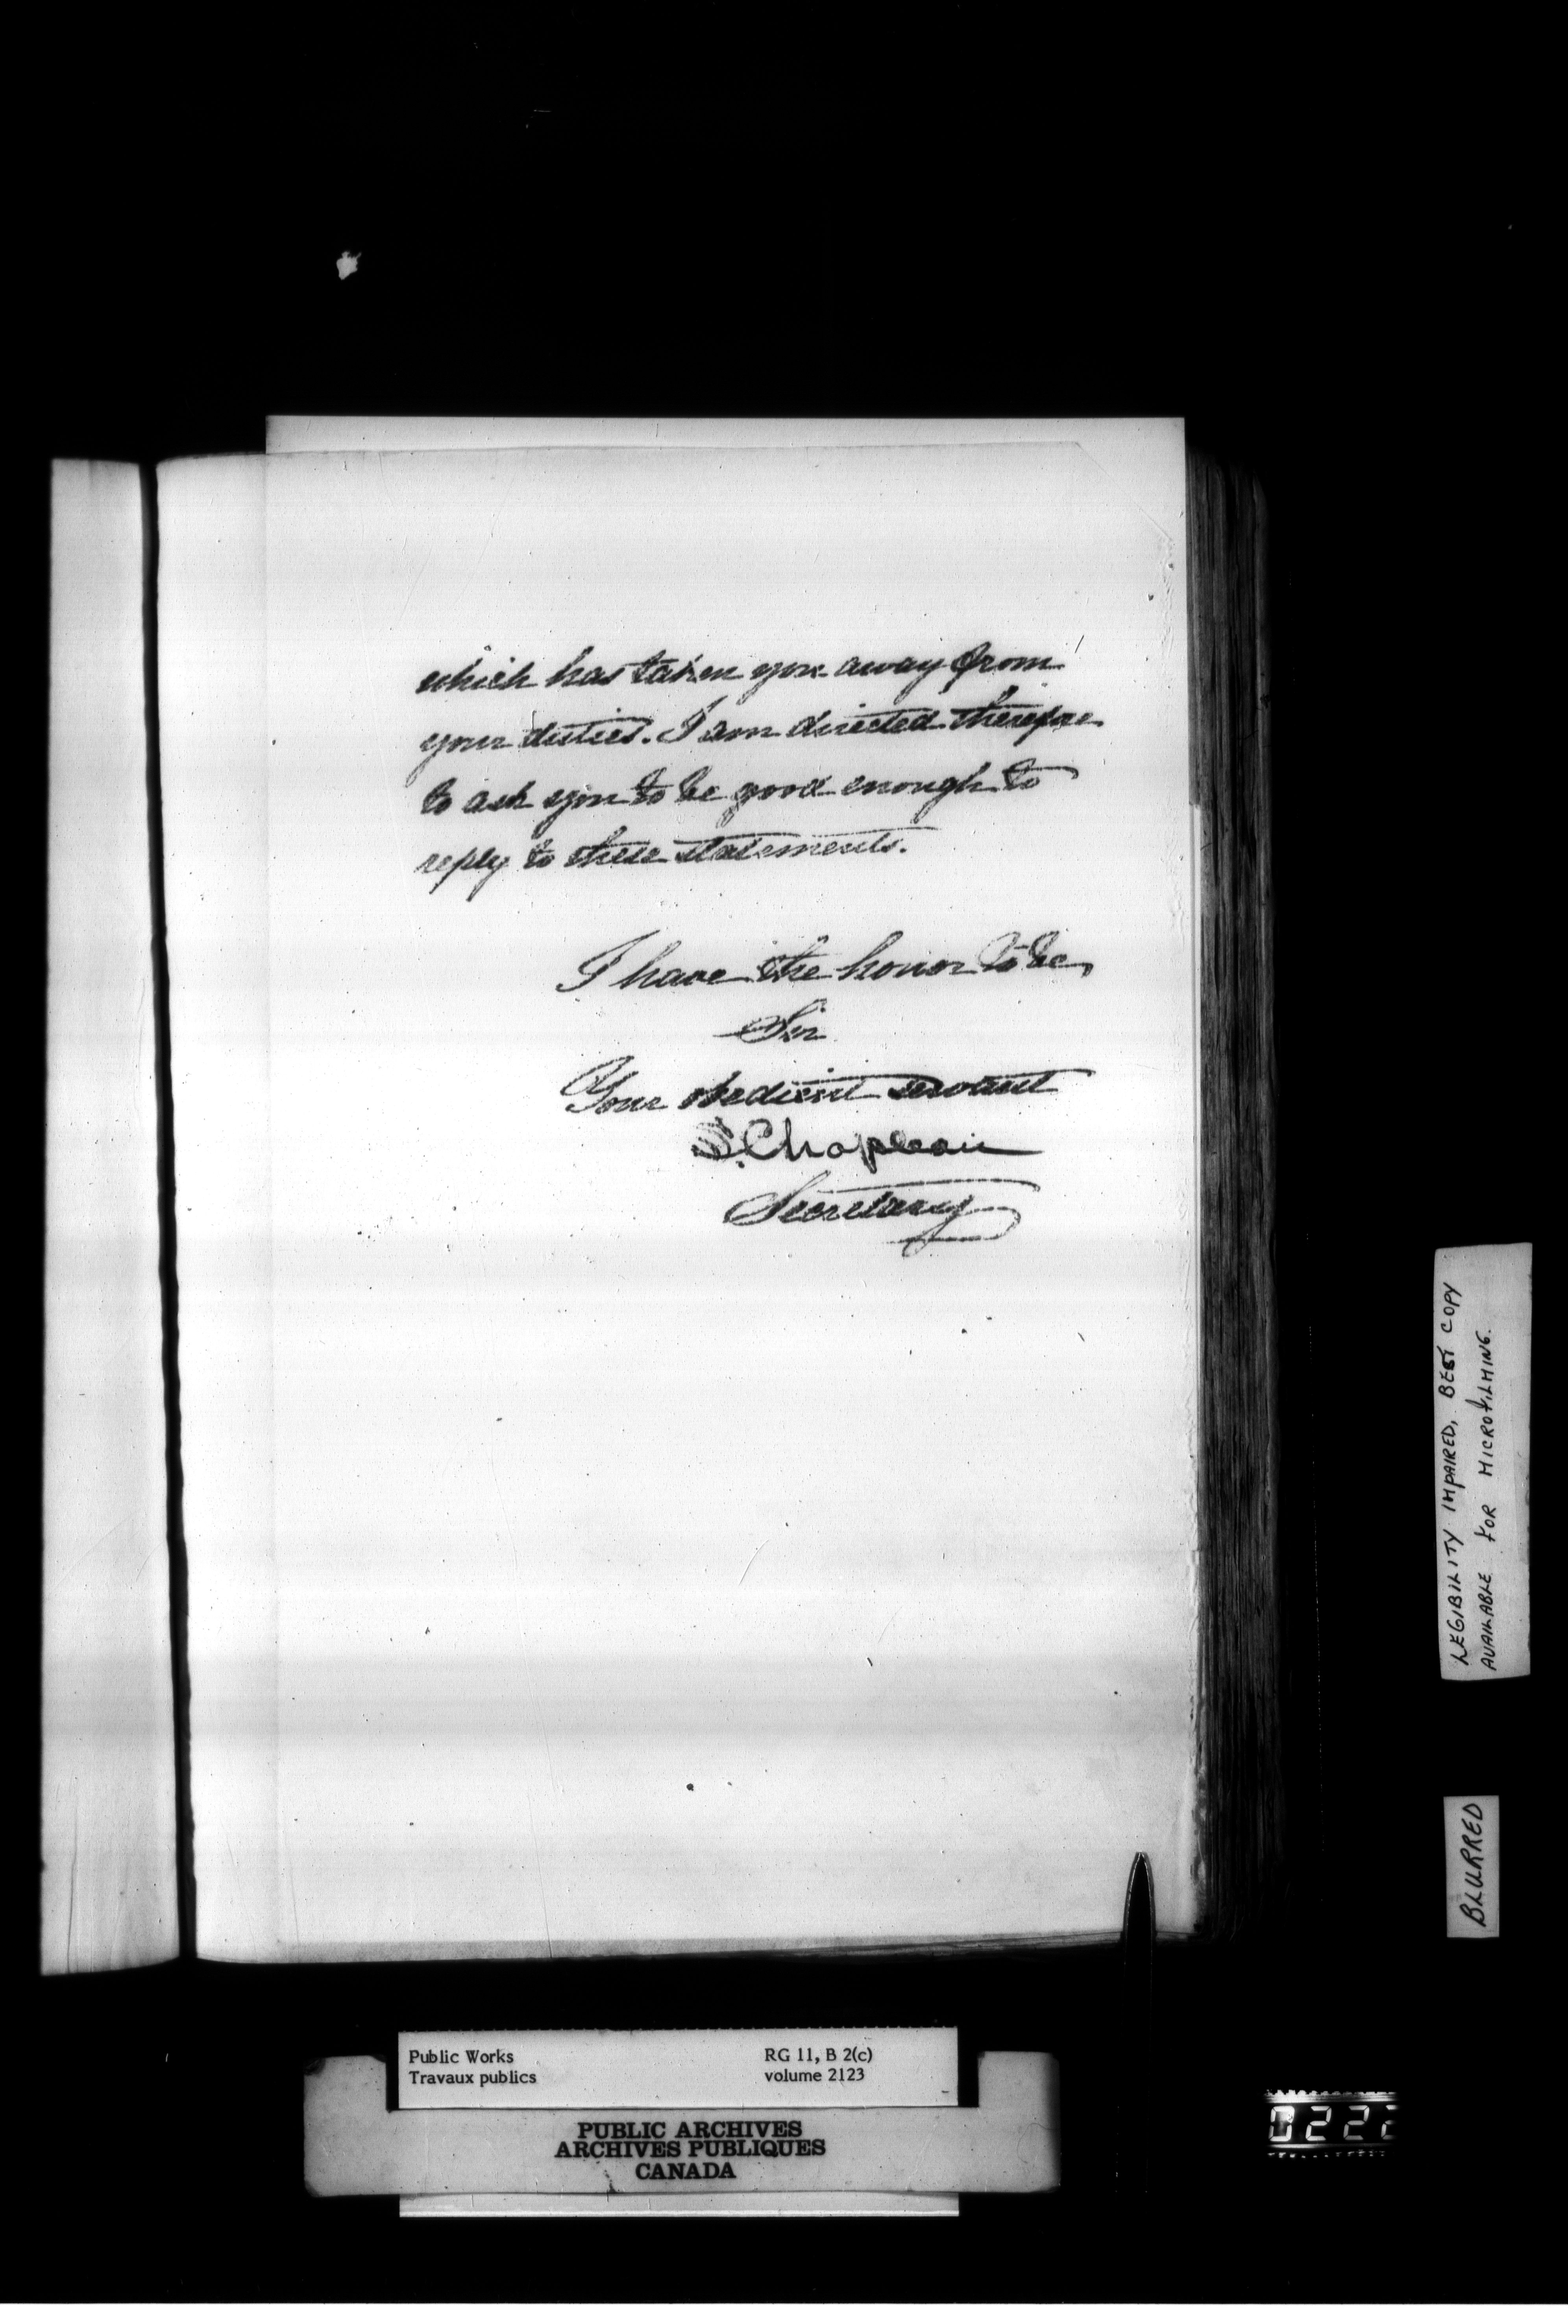 which has taken you away from
your duties. I am directed therefore
to ask you to be good enough to
reply to these statements.
I have the honor to be,
Sir
Your obedient servant
S. Chapleau
Secretary
LEGIBILITY IMPAIRED, BEST COPY
AVAILABLE FOR MICROFILMING.
BLURRED
Public Works RG 11, B 2(c)
Travaux publics volume 2123
PUBLIC ARCHIVES
ARCHIVES PUBLIQUES
CANADA
0222